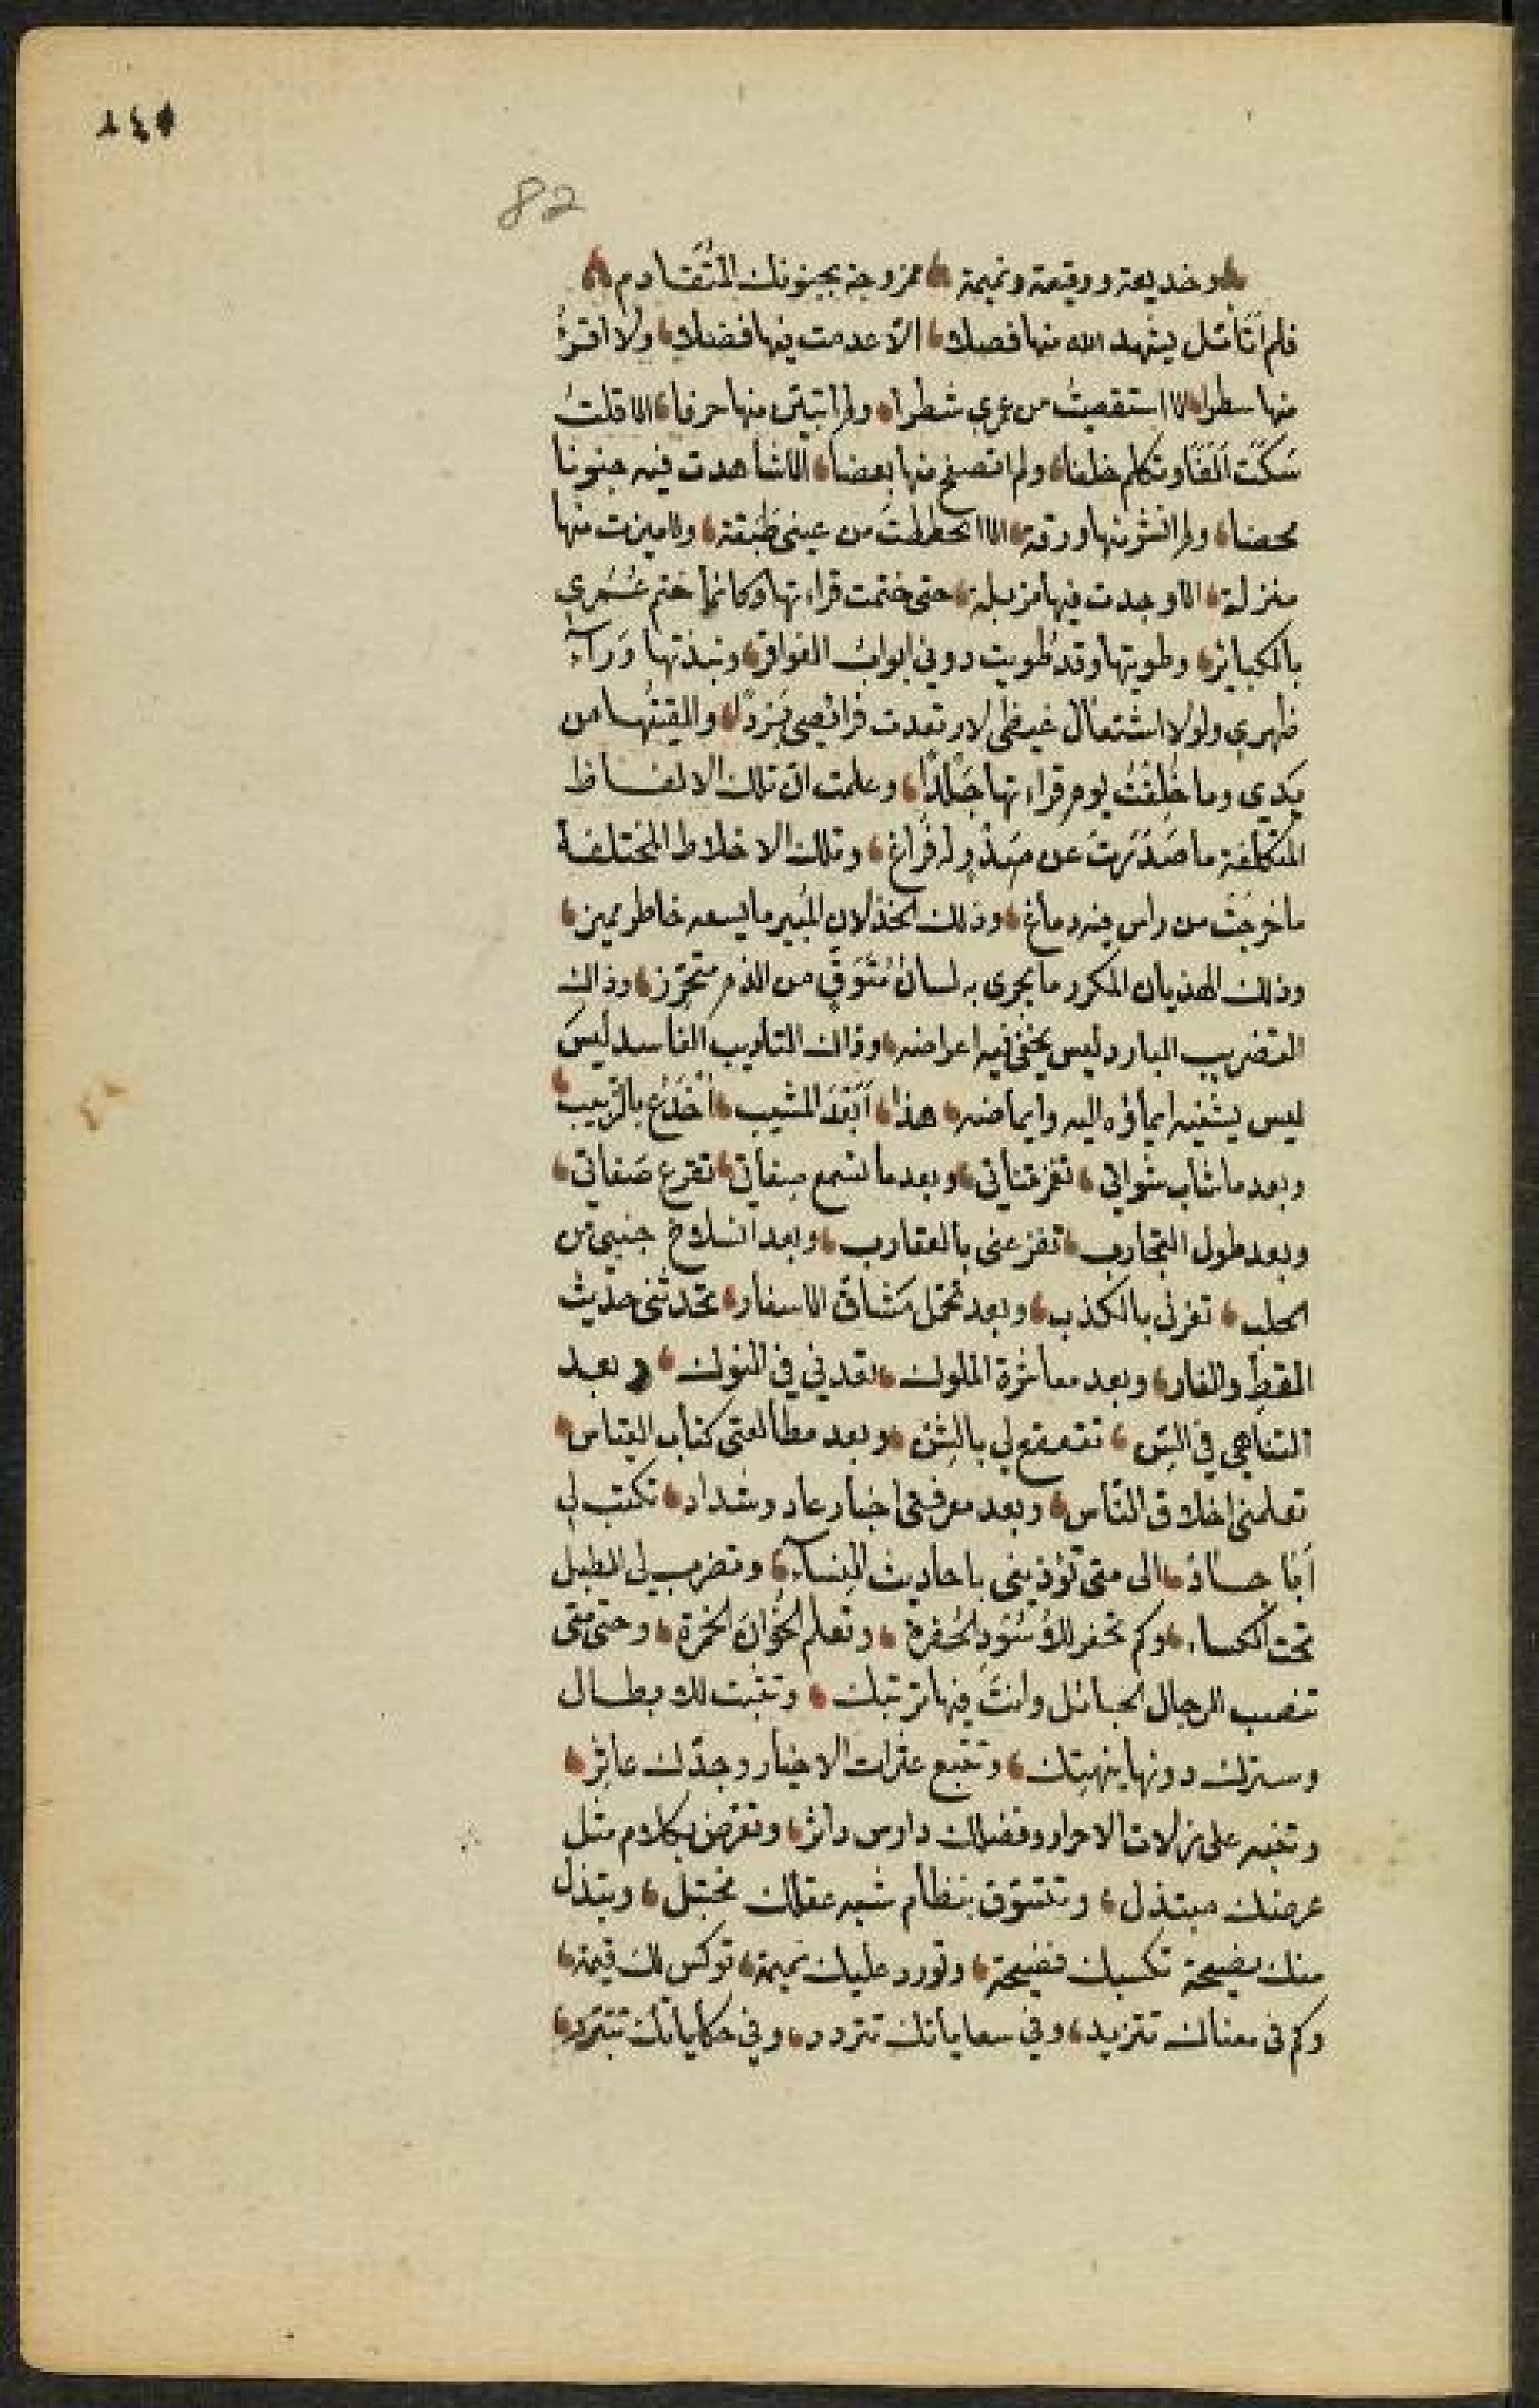 ٨٤٥
82
وخديعة ووقيعة ونميمة ممزوجة بجنونك المتقادم
فلم أتأمّل يشهد الله منها فصلا الّا عدمت فيها فضلا ولا اقرأ
منها سطرا الا استقصيت من عمري شطرا ولم اتبيّن منها حرفا الا قلت
سَكَتَ اَلْفًا وتكلم خلفا ولم اتصفح منها بعضا الا شاهدت فيه جنونا
محضا ولم انشر منها ورقة الا انحططت من عيني طَبَقة ولا ميزت منها
منزلة الا وجدت فيها مزبلة حتى ختمت قراءتها وكانما ختم عُمُري
بالكبائر وطويتها وقد طويت دوني ابواب الفواقر ونبذتها وَرَآء
ظهري ولولا اشتعال غيظي لارتعدت فرائصي بَرْدًا والقيتها من
يَدي وما خُلِقْتُ يوم قراءتها جَلْدًا وعلمت انّ تلك الالفاظ
المتكلفة ما صَدَرت عن صَدْرٍ له فراغ وتلك الاخلاط المختلفة
ما خرجَتْ من راس فيه دماغ وذلك الخذلان المُبير ما يسعه خاطر مميز
وذلك الهذيان المكرر ما يجرى به لسانُ مُتَوَقٍّ من الذم متحرّز وذاك
التضريب البارد ليس يخفى فيه اعراضه وذاك التاديب الفاسد ليسَ
ليس يشفيه ايماؤه اليه وايماضه هذا اَبَعْدَ المشيب اُخْدَعُ بالرّبيب
وبعد ما شاب شواتي تغمز قناتي وبعد ما تسمع صِفاتي تقرع صَفاتي
وبعد طول التجارب تفزعنى بالعقارب وبعد انسلاخ جنبي من
الجلب تغرني بالكذب وبعد تحمّل مَشاقّ الاسفار تحدثنى حديث
القطّ والفار وبعد معاشرة الملوك تعدني في النوك وبعد
التناهي في السّن تتقعقع لي بالشّن وبعد مطالعتى كتاب
تعلمنى اخلاق النّاس وبعد معرفتى اخبار عاد وشداد تكتب لي
اَبا جاد الى متى تؤذينى باحاديث النسآء وتضرب لي الطبل
تحت الكساء وكم تحفر للاُسُودِ الحُفرة وتعلم العَوانَ الخمرة وحتى متى
تنصب للرجال الحبائل وانتَ فيها ترتبك وتثبت للابطال
وسترك دونها ينهتك وتتبع عثرات الاخيار وجدّك عاثر
وتنبه على زلات الاحرار وفضلك دارس داثر وتعرّض بكلام مثل
عرضك مبتذل وتتشوّق بنظام شبه عقلك مختبل وتبذل
منك نصيحة تكسبك فضيحة وتورد عليك نميمة توكس لك قيمة
وكم في معناك تتزيد وفي سعاياتك تتردد وفي حكاياتك تتبرّد